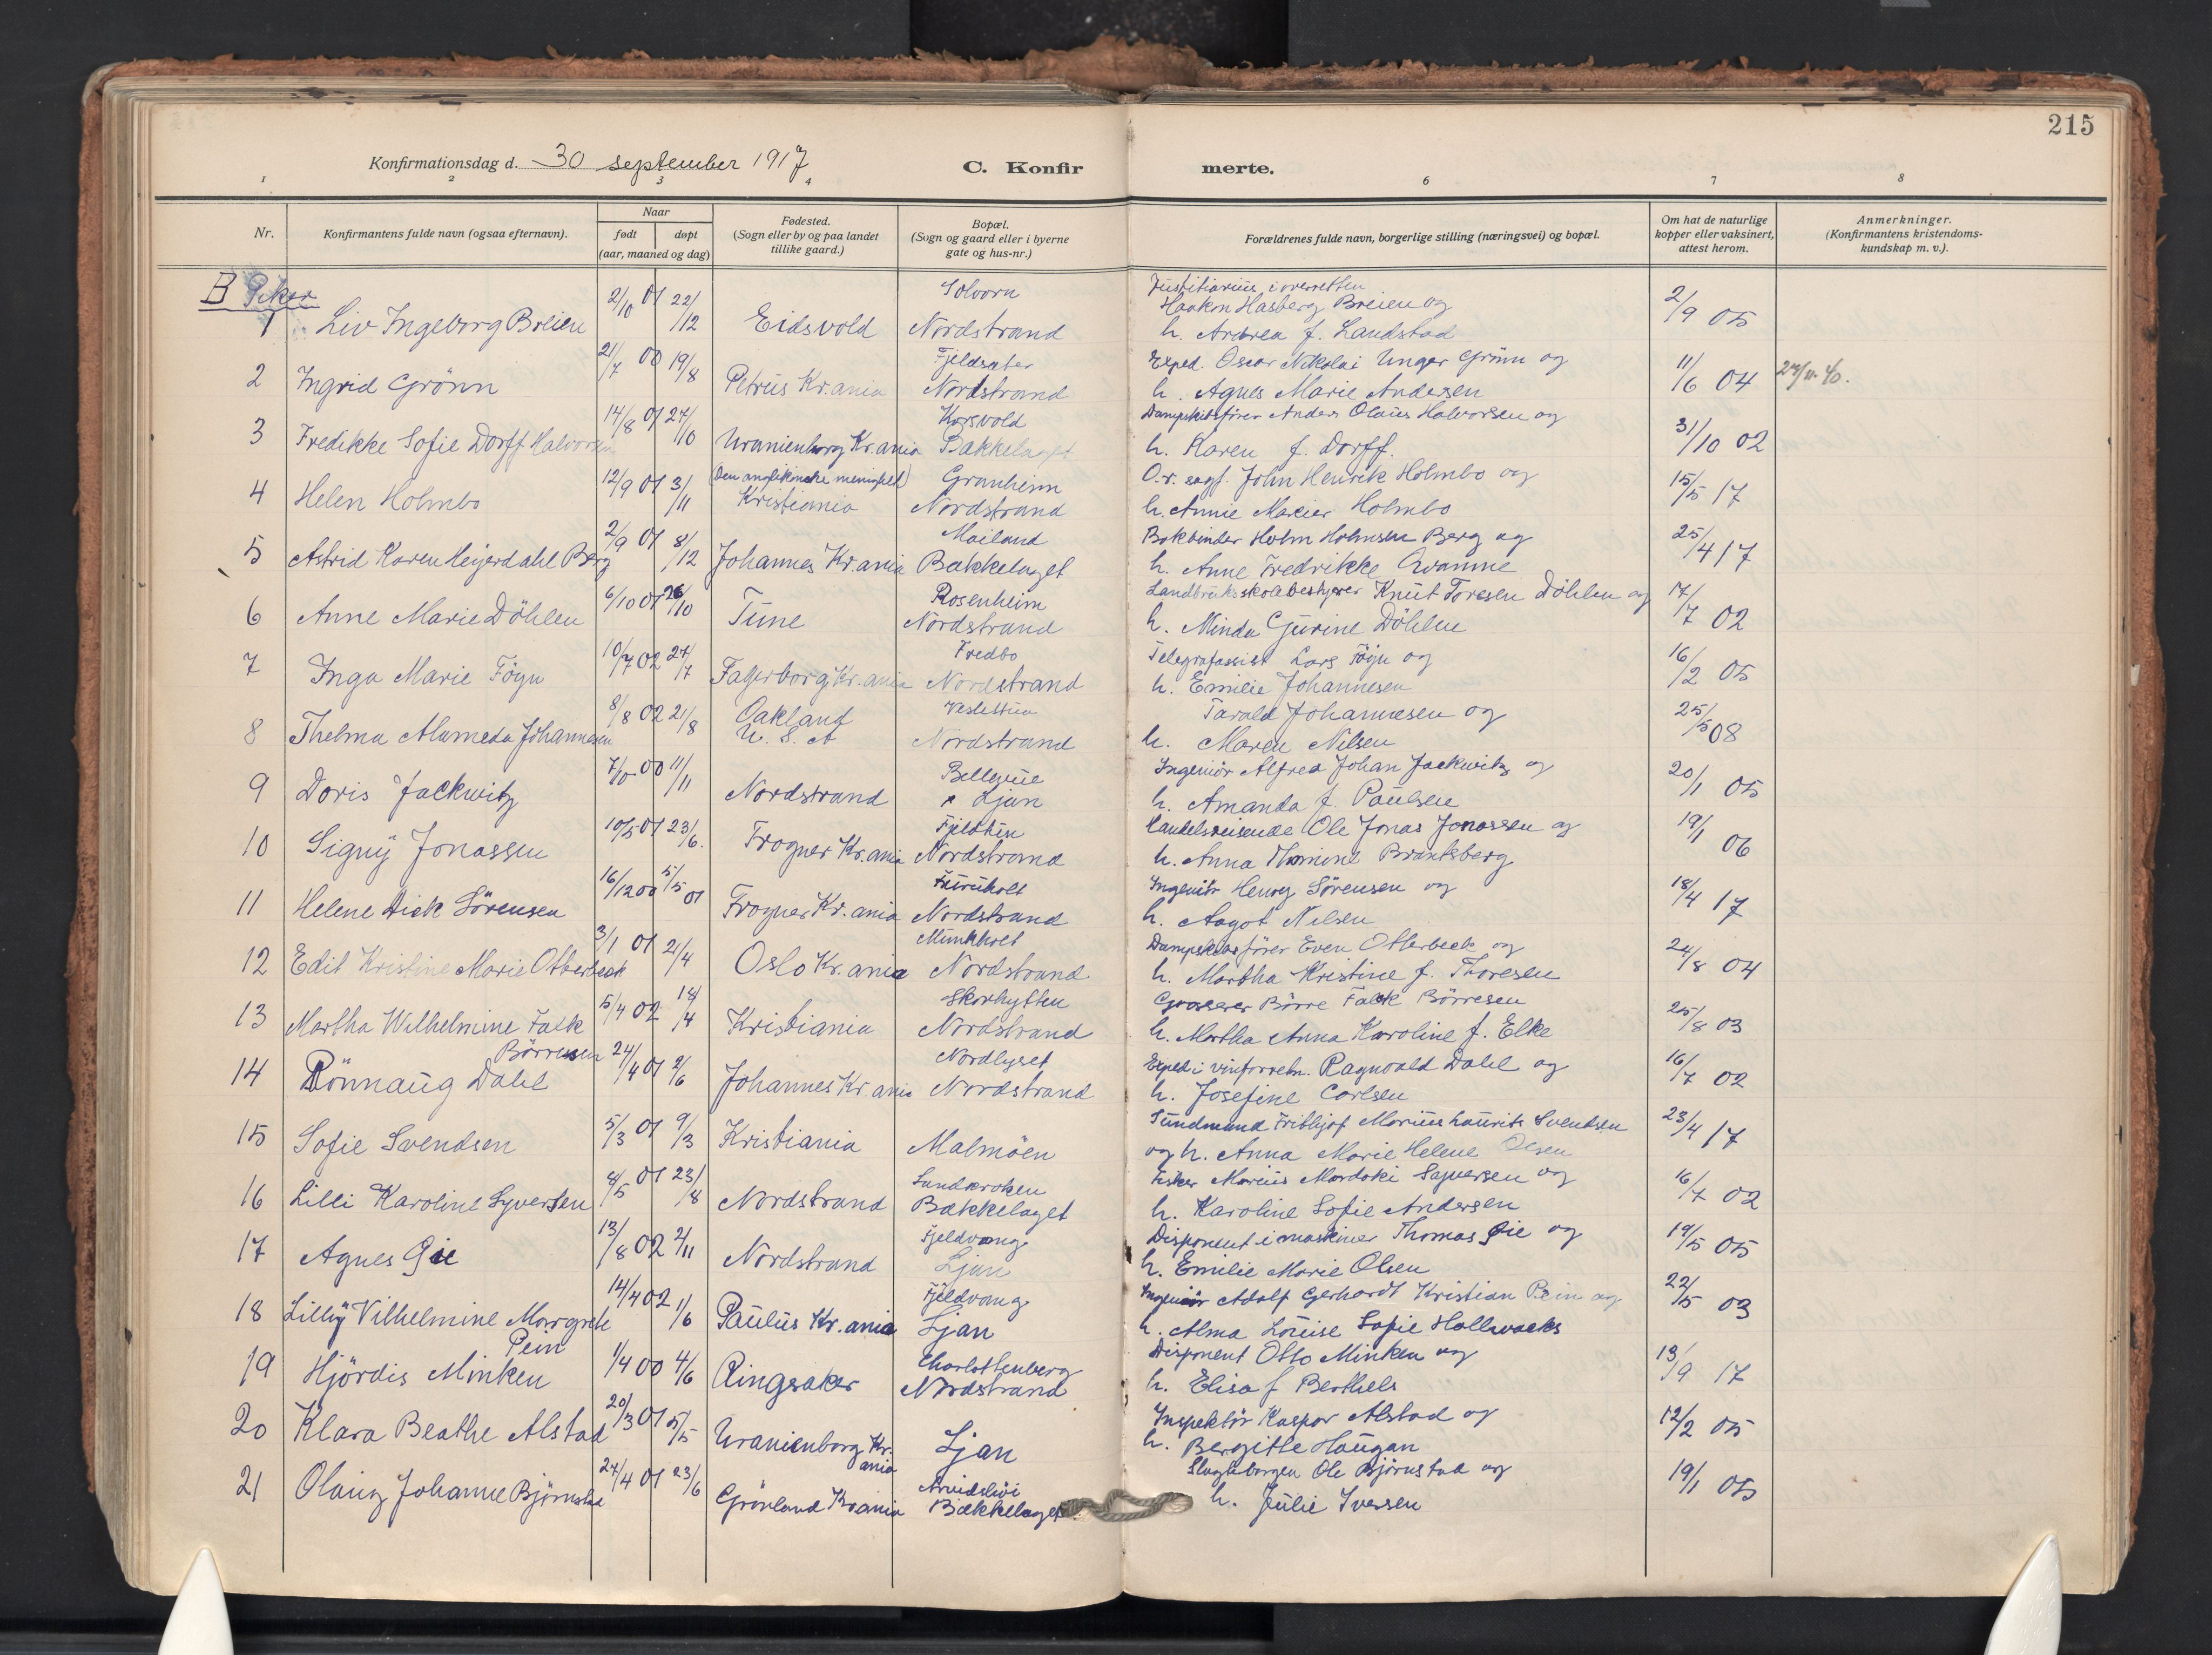 215
Konfirmationsdag d. 30 september 1917
C. Konfirmerte.
1 2 3 4 6 7 8
Nr. Konfirmantens fulde navn (ogsaa efternavn). Naar født døpt (aar, maaned og dag) Fødested. (Sogn eller by og paa landet tillike gaard.) Bopæl. (Sogn og gaard eller i byerne gate og hus-nr.) Forældrenes fulde navn, borgerlige stilling (næringsvei) og bopæl. Om hat de naturlige kopper eller vaksinert, attest herom. Anmerkninger. (Konfirmantens kristendomskundskap m. v.).
B Piker
1 Liv Ingeborg Breien 2/10 01 22/12 Eidsvold Solvorn Nordstrand Justitiarius i overretten Haakon Hasberg Breien og h. Andrea f. Landstad 2/9 05
2 Ingrid Grönn 21/7 00 19/8 Petrus Kr.ania Fjeldsæter Nordstrand Exped. Oscar Nikolai Unger Grönn og h. Agnes Marie Andersen 11/6 04
3 Fredikke Sofie Dorff Halvorsen 14/8 01 27/10 Uranienborg Kr.ania Korsvold Bækkelaget Dampskibsfører Anders Olaus Halvorsen og h. Karen f. Dorff. 31/10 02
4 Helen Holmbo 12/9 01 3/11 (Den anglikanske menighet) Kristiania Granheim Nordstrand O.r. sagf. John Henrik Holmbo og h. Annie Holmbo 15/5 17
5 Astrid Karen Meyerdahl Berg 2/9 01 8/12 Johannes Kr.ania Mailand Bækkelaget Bokbinder Holm Holmsen Berg og h. Anne Fredrikke Qvamme 25/4 17
6 Anne Marie Döhlen 6/10 01 26/10 Tune Rosenheim Nordstrand Landbruksskolebestyrer Knut Toresen Döhlen og h. Minda Gurine Döhlen 17/7 02
7 Inga Marie Fögn 10/7 02 27/7 Fagerborg Kr.ania Fredbo Nordstrand Telegrafassist Lars Fögn og h. Emilie Johannesen 16/2 05
8 Thelma Alameda Johannesen 8/8 02 21/8 Oakland U. S. A Veslestua Nordstrand Tarald Johannesen og h. Maren Nilsen 25/5 08
9 Doris Jackwitz 7/10 00 11/11 Nordstrand Bellevue Ljan Ingeniör Alfred Johan Jackwitz og h. Amanda f. Paulsen 20/1 05
10 Signy Jonassen 10/5 01 23/6. Frogner Kr.ania Nordstrand Handelsreisende Ole Jonas Jonassen og h. Anna Thomine Brantsberg 19/1 06
11 Helene Dick Sörensen 16/12 00 5/5 01 Frogner Kr.ania Furuholt Nordstrand Ingeniör Henry Sörensen og h. Aagot Nilsen 18/4 17
12 Edit Kristine Marie Otterbeck 3/1 01 21/4 Oslo Kr.ania Munkholt Nordstrand Dampskibsfører Even Otterbeck og h. Martha Kristine f. Thoresen 24/8 04
13 Martha Wilhelmine Falk Börresen 5/4 02 18/4 Kristiania Skorhytten Nordstrand Grosserer Börre Falck Börresen h. Martha Anna Karoline f. Elke 25/8 03
14 Rönnaug Dahl 24/4 01 2/6 Johannes Kr.ania Nordlyset Nordstrand Exped i vinforretn. Ragnvald Dahl og h. Josefine Carlsen 16/7 02
15 Sofie Svendsen 5/3 01 9/3 Kristiania Malmöen Sundmand Frithjof Marius Laurits Svendsen og h. Anna Marie Helene Olsen 23/4 17
16 Lilli Karoline Syvertsen 8/5 01 23/8 Nordstrand Sandkroken Bækkelaget Fisker Marius Mardoki Syversen og h. Karoline Sofie Andersen 16/7 02
17 Agnes Gie 13/8 02 2/11 Nordstrand Fjeldvang Ljan Disponent i maskiner Thomas Gie og h. Emilie Marie Olsen 19/5 05
18 Lilly Vilhelmine Margrete Pein 14/4 02 1/6 Paulus Kr.ania Fjeldvang Ljan Ingeniör Adolf Gerhardt Kristian Pein og h. Alma Louise Sofie Hollwacks 22/5 03
19 Hjördis Minken 1/4 00 4/6 Ringsaker Charlottenberg Nordstrand Disponent Otto Minken og h. Elisa f Berthels 13/9 17
20 Klara Beathe Alstad 20/3 01 5/5 Uranienborg Kr.ania Ljan Inspektör Kaspar Alstad og h. Bergitte Haugan 12/2 05
21 Olaug Johanne Björnstad 24/4 01 23/6 Grönland Kr.ania Bækkelaget Ole Björnstad og h. Julie Iversen 19/1 05